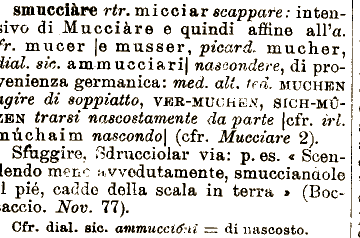 smucciàre rtr. micciar scappare: inten-
sivo di Mucciàre e quindi affine all'a.
fr. mucer [e musser, picard. mucher,
dial. sic. ammucciari] nascondere, di pro-
venienza germanica: med. alt. ted. MUCHEN
agire di soppiatto, VER-MUCHEN, SICH-MÛ-
ZEN trarsi nascostamente da parte [cfr. irl.
múchaim nascondo] (cfr. Mucciare 2).
Sfuggire, Sdrucciolar via: p. es. « Scen-
dendo meno avvedutamente, smucciandole
il piè, cadde della scala in terra » (Boc-
caccio. Nov. 77).
Cfr. dial. sic. ammucciúni = di nascosto.